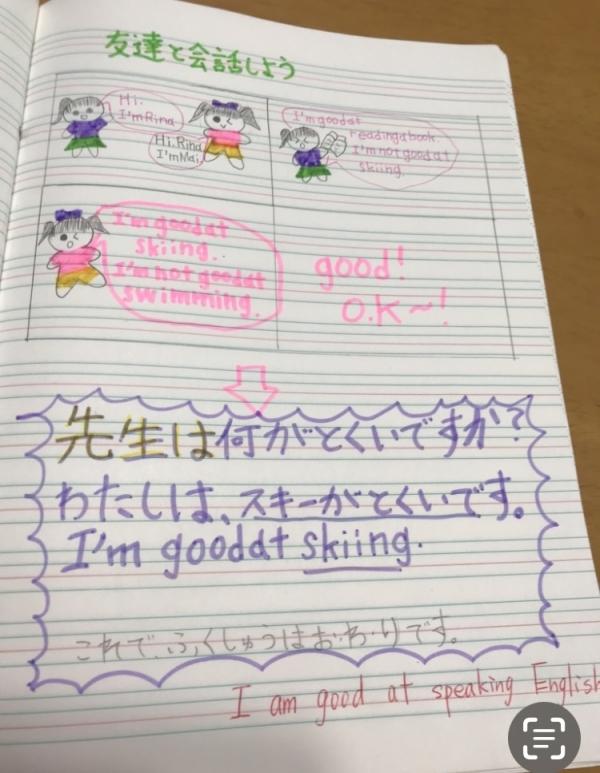 友達と会話しよう
Hi.
I'm Rina
Hi. Rina
I'm Mai.
I'm goodat
readingabook.
I'm not good at
skiing.
I'm goodat
skiing.
I'm not goodat
swimming.
good!
O.K〜!
先生は何がとくいですか?
わたしは、スキーがとくいです。
I'm goodat skiing.
これで、ふくしゅうはおわりです。
I am good at speaking English